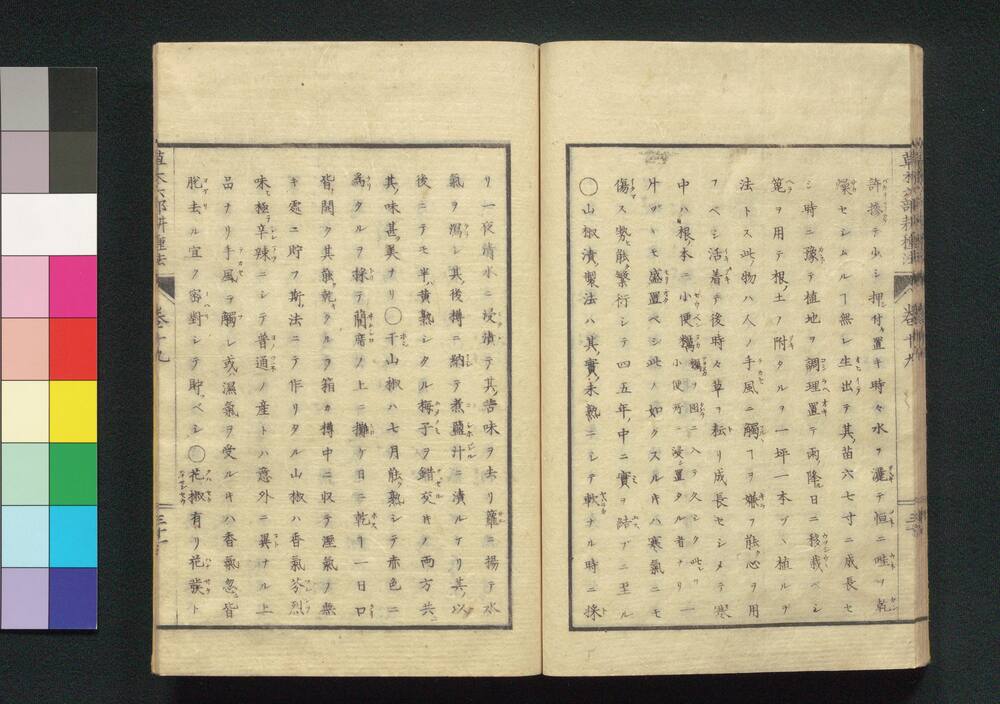 許掺テ少シ押付ケ置キ時々水ヲ灌テ恒ニ畦ヲ乾
燥セシムルヿ無レ生出テ其苗六七寸ニ成長セ
シ時ニ豫テ植地ヲ調理置テ雨降日ニ移栽ベシ
篦ヲ用テ根ノ土ヲ附タルヲ一坪一本ヅヽ植ルヲ
法トス此物ハ人ノ手風ニ觸ヿヲ嫌フ能心ヲ用
フベシ活着テ後時々草ヲ耘リ成長セシメテ寒
中ハ根本ニ小便襤褸ヲ囲ニ入テ久シク此ヒリ一
小便所ニ浸置タル者ナリ
片ヅヽモ盛置ベシ此ノ如クスルキハ寒氣ニモ
傷ス勢能繁衍シテ四五年中ニ實ヲ結ブニ至ル
〇山椒漬製法ハ其實未熟ニシテ軟ナル時ニ採
リ一夜清水ニ浸漬テ其苦味ヲ去リ籮ニ揚テ水
氣ヲ瀉シ其後樽ニ納テ煮鹽汁ニ漬ルナリ其以
後ニテモ半黄熟シタル梅子ヲ錯交キノ両方共ニ
其味甚美ナリ〇干山椒ハ七月能熟シテ赤色ニ
為タルヲ採テ簡席ノ上ニ攤ケ日ニ乾ヿ一日口
皆開ク其能乾タルヲ箱カ樽中ニ収テ溼氣ノ無
キ處ニ貯フ斯法ニテ作リタル山椒ハ香氣芬烈
味ヒ極辛辣ニシテ普通ノ産トハ意外ニ異ナル上
品ナリ手風ヲ觸レ或濕氣ヲ受ルキハ香氣忽皆
脱去ル宜ク密封シテ貯ベシ〇花椒有リ花發ト
草木六部耕種法
卷十九
三十一